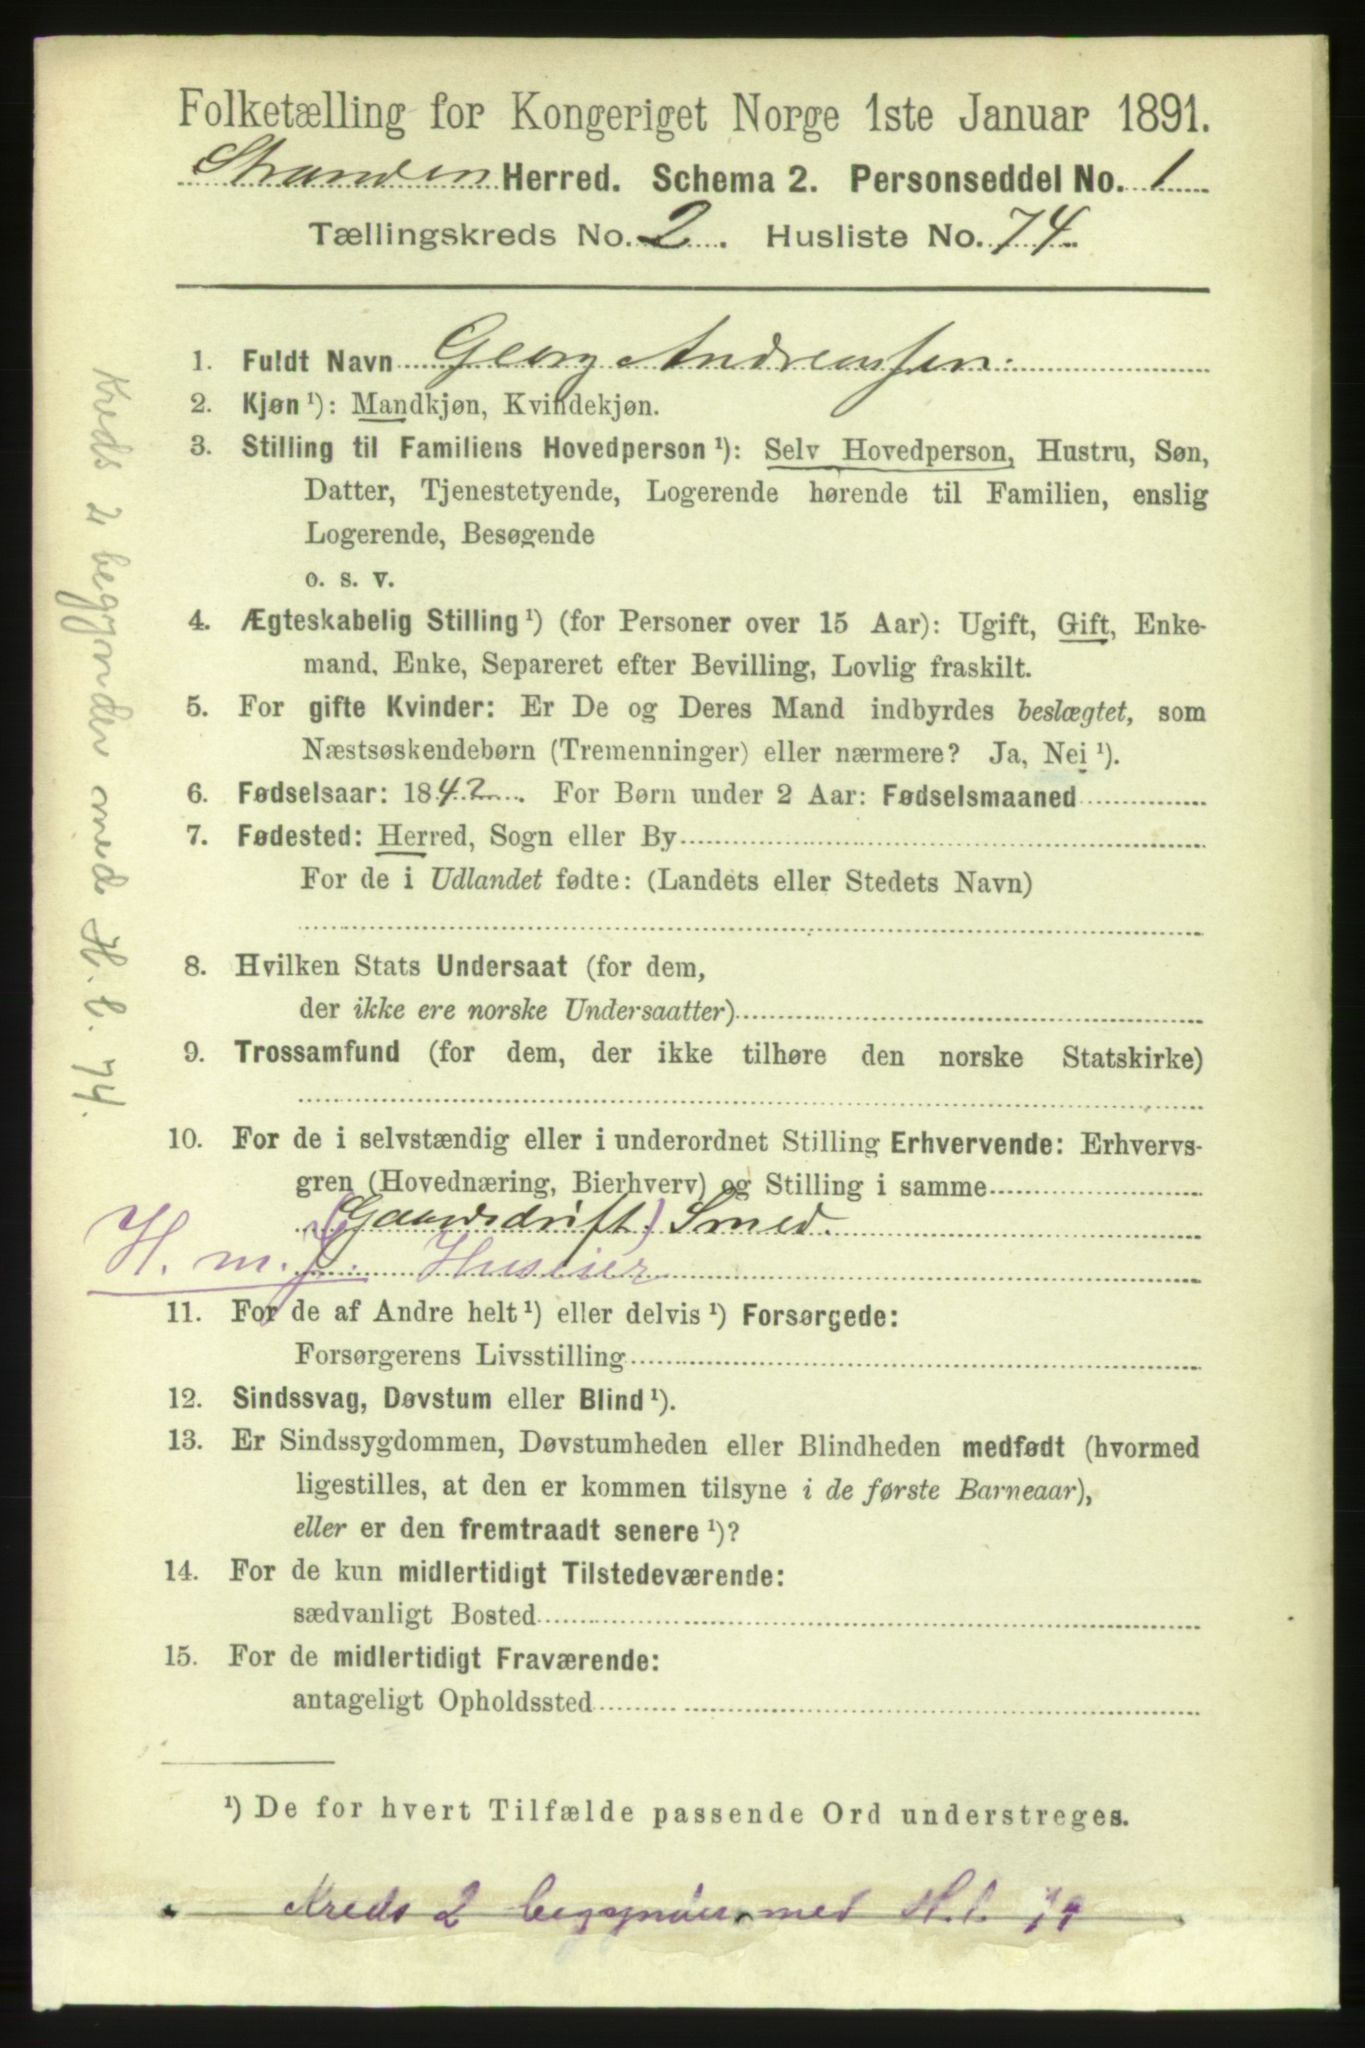 Folketælling for Kongeriget Norge 1ste Januar 1891.
Stranden Herred. Schema 2. Personseddel No. 1
Tællingskreds No. 2. Husliste No. 74
1. Fuldt Navn Georg Andreassen.
2. Kjøn¹): Mandkjøn, Kvindekjøn.
3. Stilling til Familiens Hovedperson¹): Selv Hovedperson, Hustru, Søn,
Datter, Tjenestetyende, Logerende hørende til Familien, enslig
Logerende, Besøgende
o. s. v.
4. Ægteskabelig Stilling¹) (for Personer over 15 Aar): Ugift, Gift, Enke-
mand, Enke, Separeret efter Bevilling, Lovlig fraskilt.
5. For gifte Kvinder: Er De og Deres Mand indbyrdes beslægtet, som
Næstsøskendebørn (Tremenninger) eller nærmere? Ja, Nei¹).
6. Fødselsaar: 1842. For Børn under 2 Aar: Fødselsmaaned
7. Fødested: Herred, Sogn eller By
For de i Udlandet fødte: (Landets eller Stedets Navn)
8. Hvilken Stats Undersaat (for dem,
der ikke ere norske Undersaatter)
9. Trossamfund (for dem, der ikke tilhøre den norske Statskirke)
10. For de i selvstændig eller i underordnet Stilling Erhvervende: Erhvervs-
gren (Hovednæring, Bierhverv) og Stilling i samme
(Gaardsdrift) Smed.
H. m. j. Huseier
11. For de af Andre helt¹) eller delvis¹) Forsørgede:
Forsørgerens Livsstilling
12. Sindssvag, Døvstum eller Blind¹).
13. Er Sindssygdommen, Døvstumheden eller Blindheden medfødt (hvormed
ligestilles, at den er kommen tilsyne i de første Barneaar),
eller er den fremtraadt senere¹)?
14. For de kun midlertidigt Tilstedeværende:
sædvanligt Bosted
15. For de midlertidigt Fraværende:
antageligt Opholdssted
¹) De for hvert Tilfælde passende Ord understreges.
Kreds 2 begynder med H.l. 74
Kreds 2 begynder med H.l. 74.